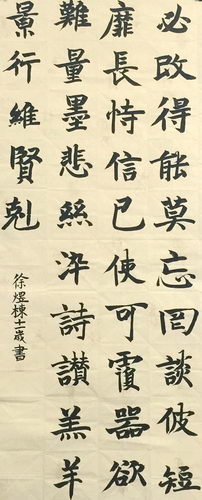 必改得能莫忘罔談彼短
靡長恃信已使可覆器欲
難量墨悲絲染詩讃羔羊
景行維賢剋
徐煜棟十一歲書